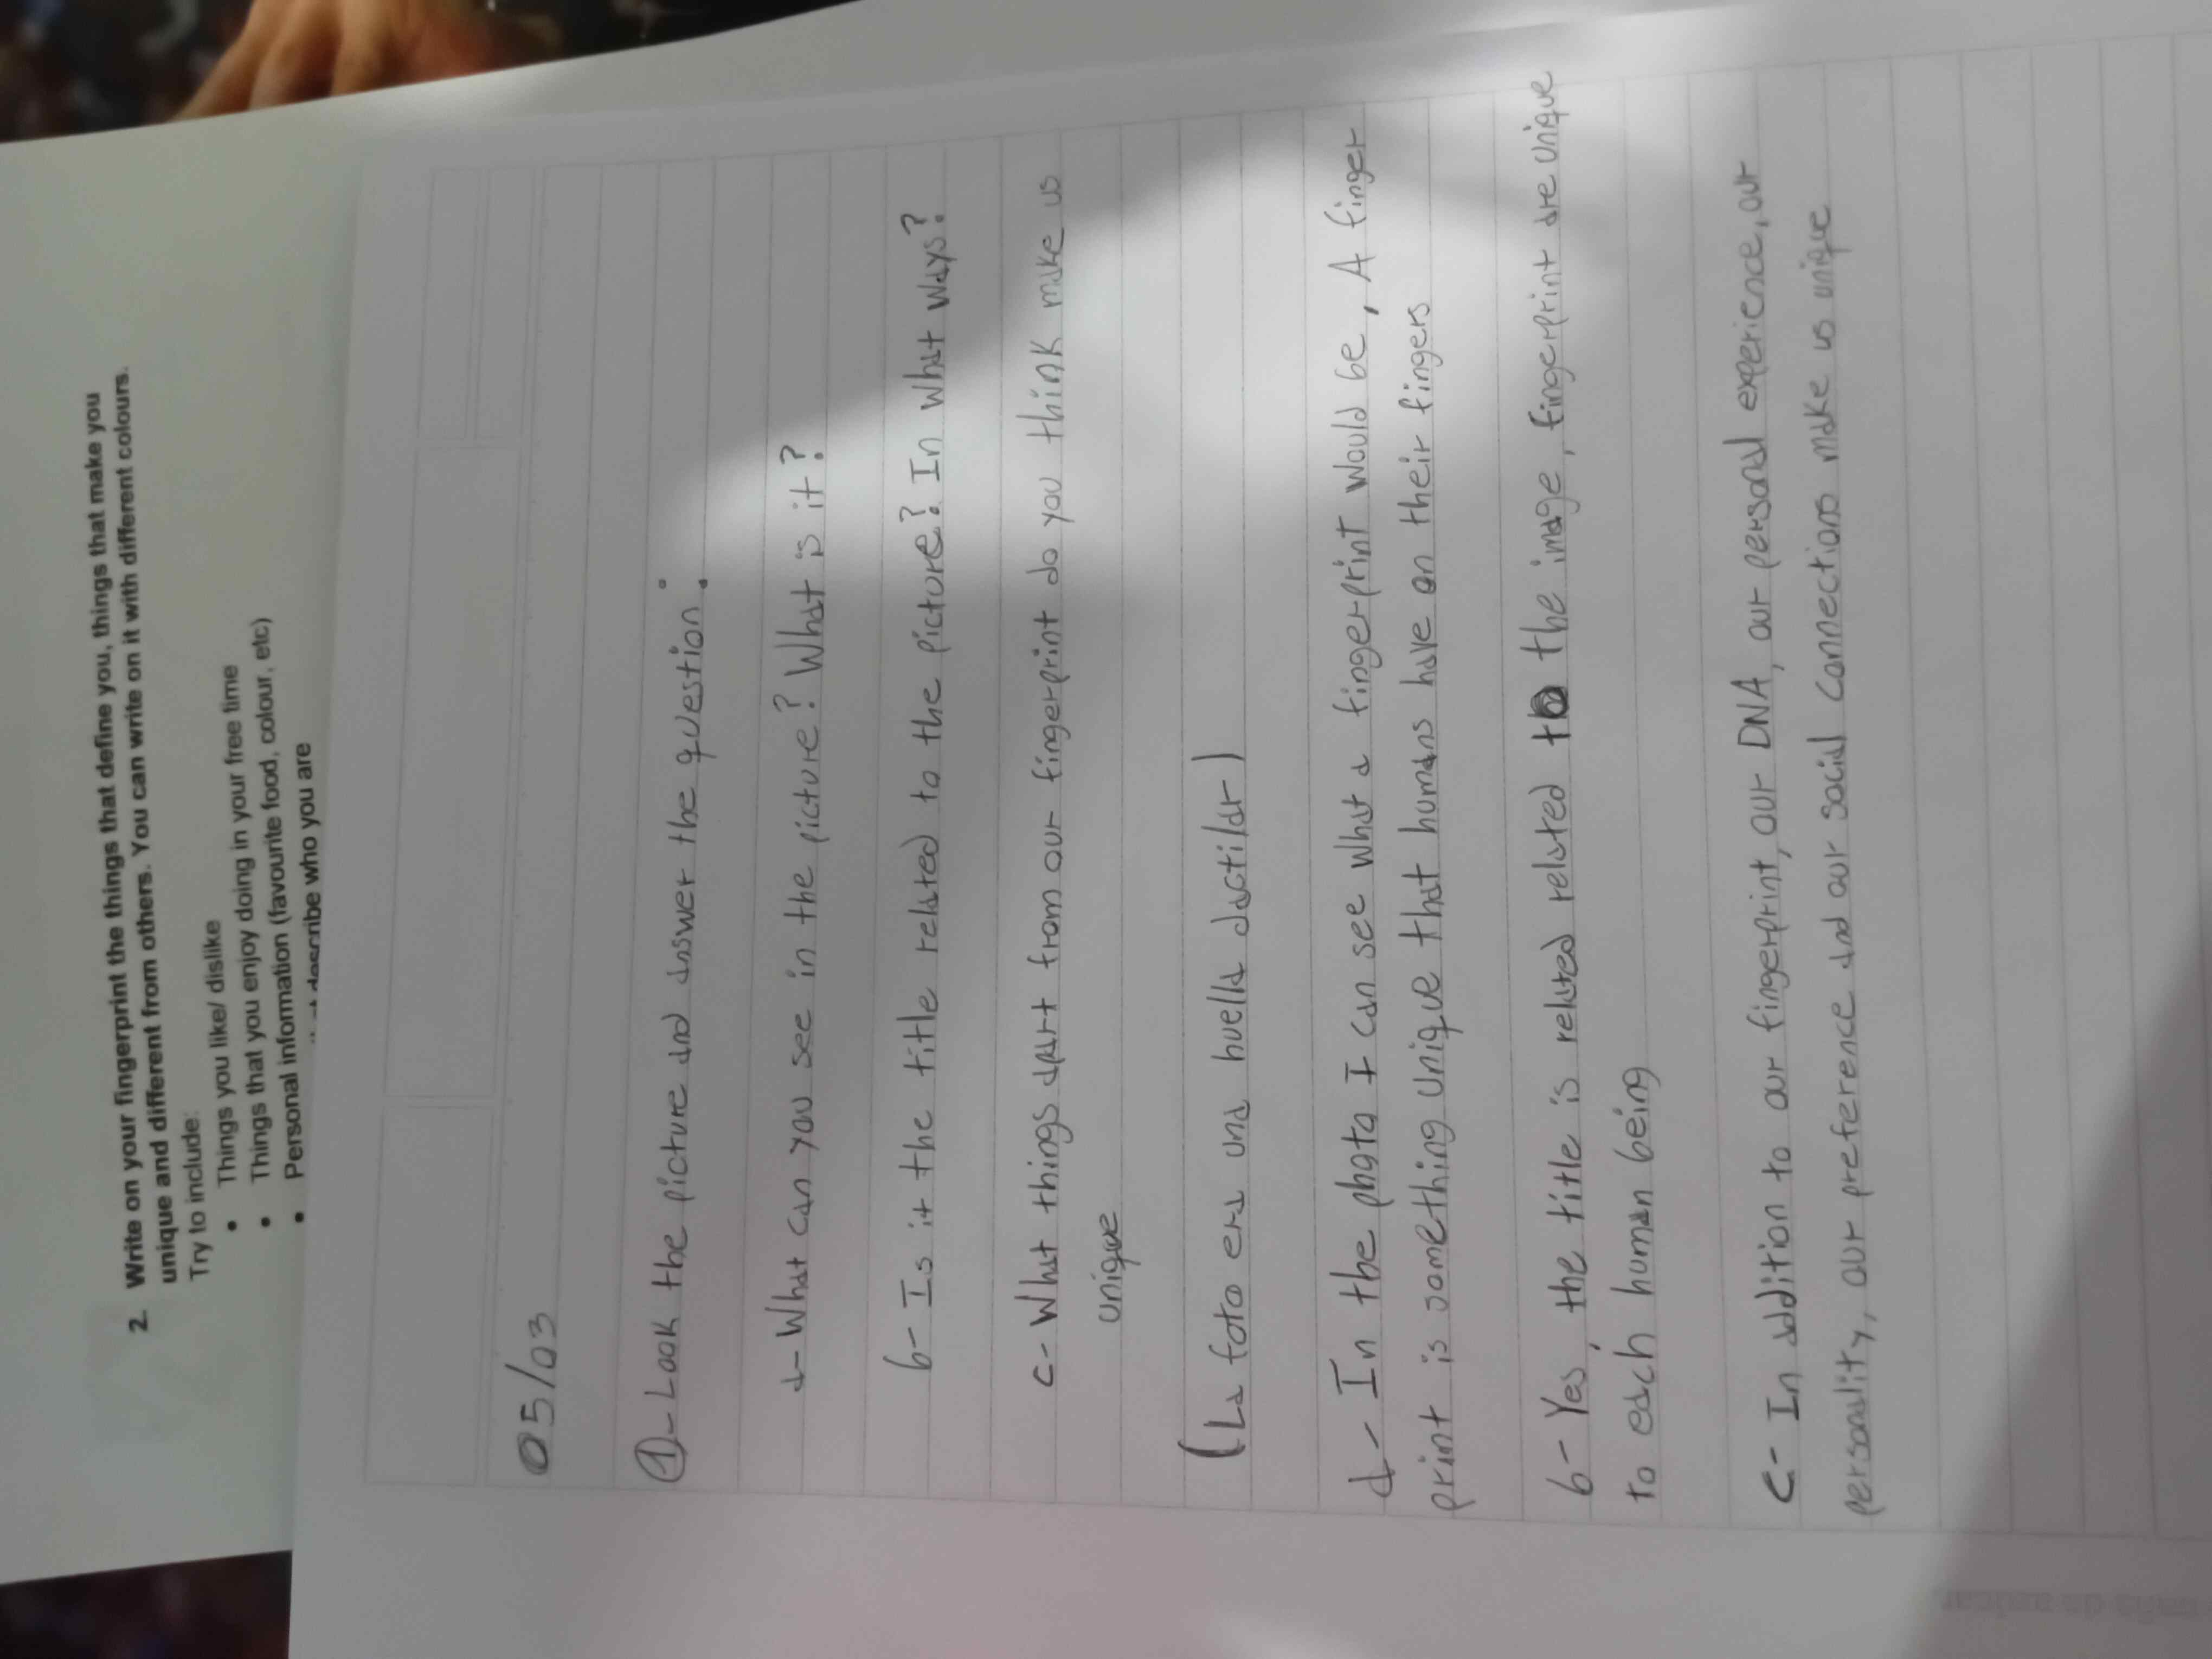 2. Write on your fingerprint the things that define you, things that make you
unique and different from others. You can write on it with different colours.
Try to include:
• Things you like/ dislike
• Things that you enjoy doing in your free time
• Personal information (favourite food, colour, etc)
• describe who you are
05/03
1- Look the picture and answer the question:
a- What can you see in the picture? What is it?
b- Is it the title related to the picture? In what ways?
c- What things apart from our fingerprint do you think make us
unique
(La foto era una huella dactilar)
a- In the photo I can see what a fingerprint would be, A finger
print is something unique that humans have on their fingers
b- Yes, the title is related related to the image, fingerprint are unique
to each human being
c- In addition to our fingerprint, our DNA, our personal experience, our
personality, our preference and our social connections make us unique